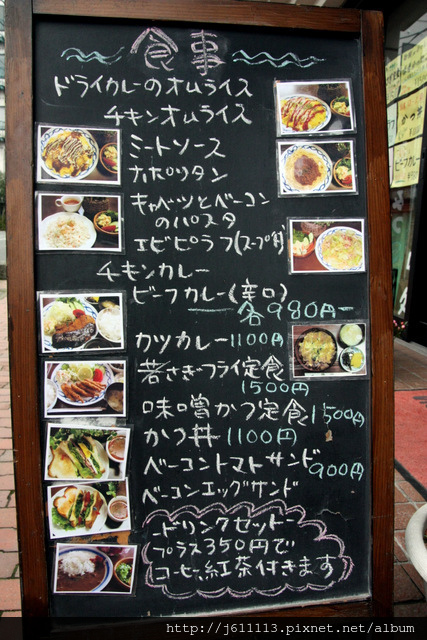 食事
ドライカレーのオムライス
チキンオムライス
ミートソース
ナポリタン
キャベツとベーコン
のパスタ
エビピラフ(スープ付)
チキンカレー
ビーフカレー(辛口)
各980円
カツカレー1100円
若さぎフライ定食
1500円
味噌かつ定食1500円
かつ丼 1100円
ベーコントマトサンド
900円
ベーコンエッグサンド
ードリンクセットー
プラス350円で
コーヒー紅茶付きます
http://j611113.pixnet.net/album